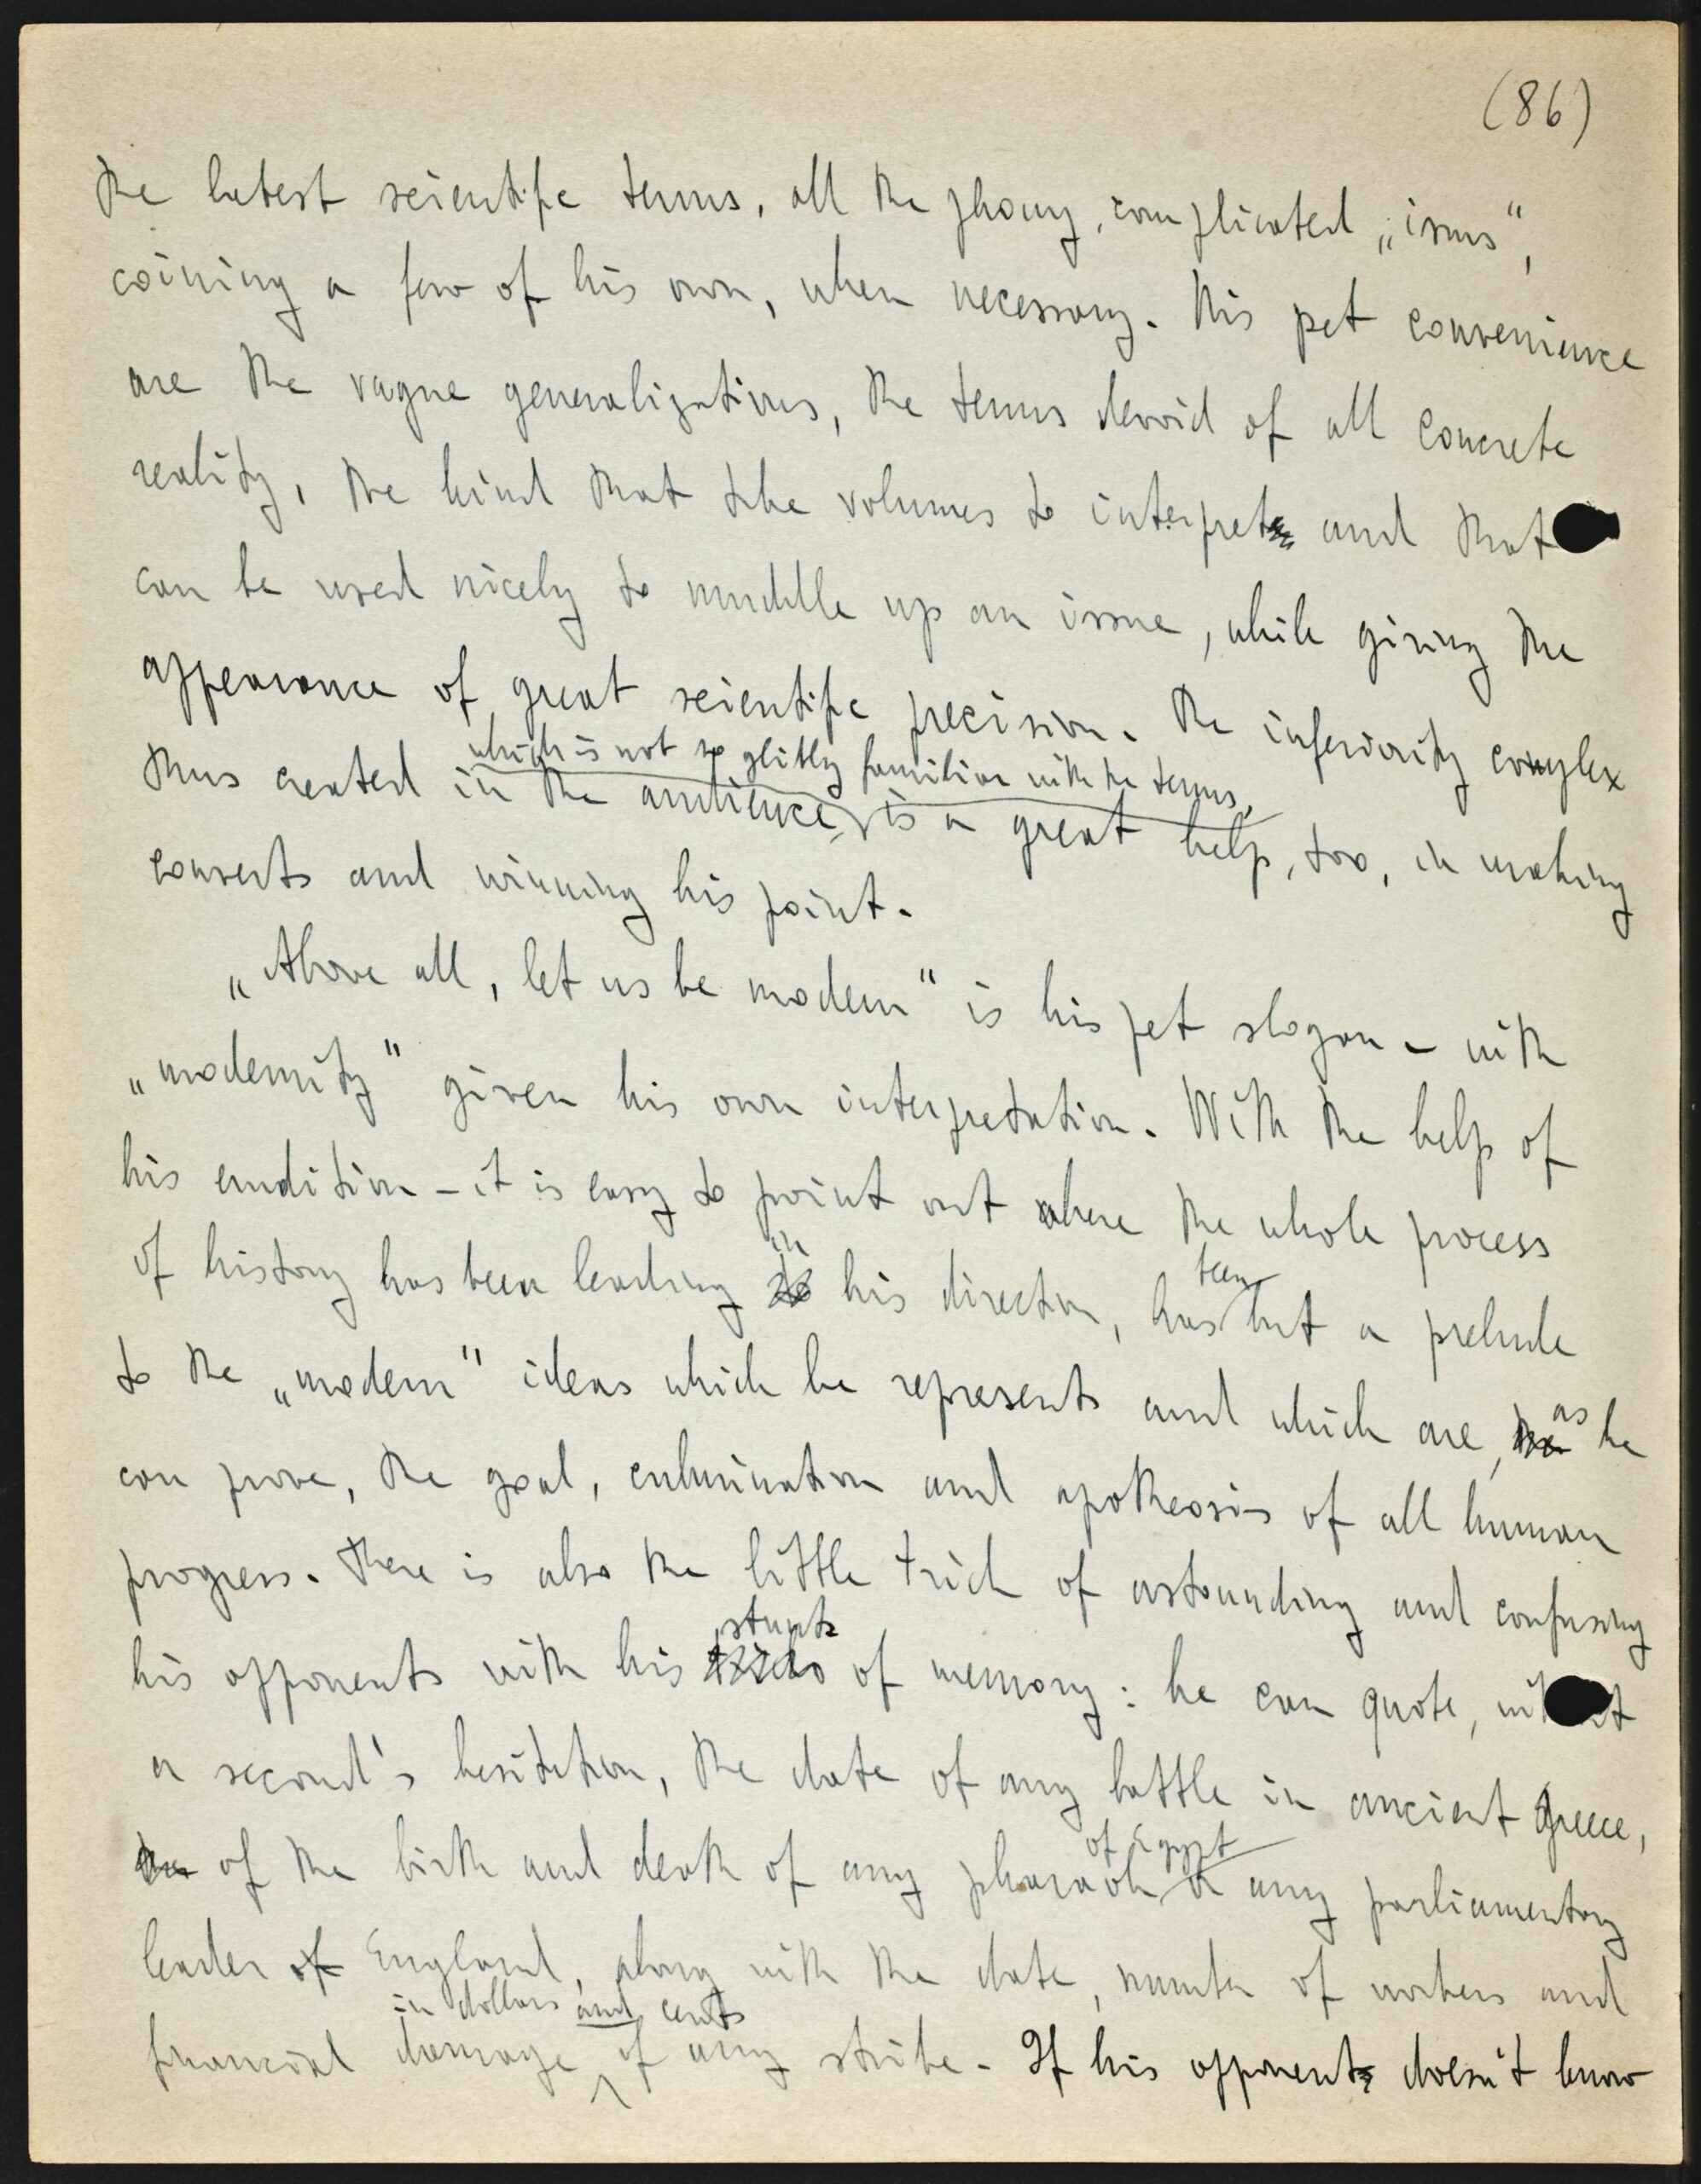 (86)
the latest scientific terms, all the phony, complicated „isms",
coining a few of his own, when necessary. His pet convenience
are the vague generalizations, the terms devoid of all concrete
reality, the kind that take volumes to interpret and that
can be used nicely to muddle up an issue, while giving the
appearance of great scientific precision. The inferiority complex
which is not so glibly familiar with the terms,
thus created in the audience, is a great help, too, in making
converts and winning his point.
„Above all, let us be modern" is his pet slogan – with
„modernity" given his own interpretation. With the help of
his erudition – it is easy to point out where the whole process
of history has been leading in his direction, has been but a prelude
to the „modern" ideas which he represents and which are, as he
can prove, the goal, culmination and apotheosis of all human
progress. There is also the little trick of astounding and confusing
his opponents with his stunts of memory: he can quote,
a second's hesitation, the date of any battle in ancient Greece,
of the birth and death of any pharaoh of Egypt or any parliamentary
leader of England, along with the date, number of workers and
in dollars and cents
financial damage of any strike. If his opponent doesn't know